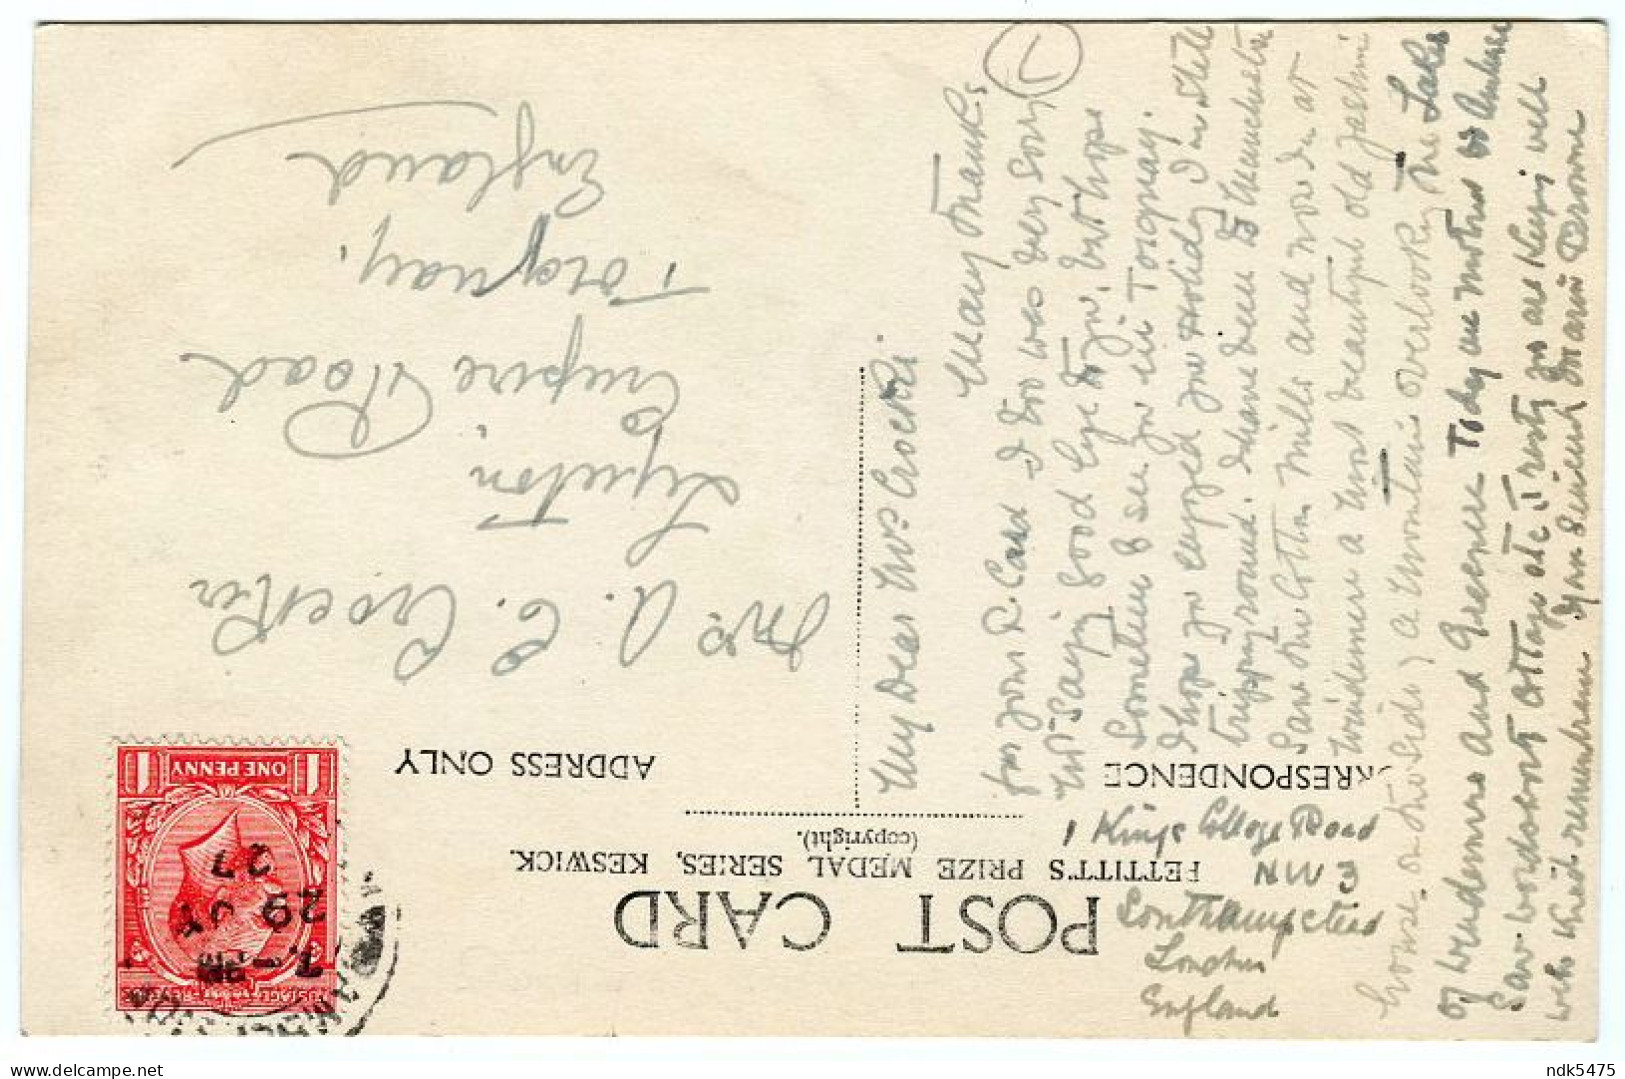 POST CARD
FETTITT'S PRIZE MEDAL SERIES, KESWICK.
(copyright).
CORRESPONDENCE
ADDRESS ONLY
ONE PENNY
29
27
Mrs A. E. Crocker
Empire Road
Torquay.
England
1 Kings College Road
NW 3
South Hampstead
London
England
My Dear Mrs Crocker
Many Thanks
for your P. Card I too was very sorry
not Saying good bye to you, but hope
Sometime to see you in Torquay.
I hope you enjoyed your Holiday I'm still
tripping round. have been to Manchester
Saw the Cotton Mills and now I'm at
Windermere a most beautiful old
House on one side, a Mountain overlooking the Lakes
of Windermere and Grasmere Today we motored to
Saw Wordsworth Cottage etc I trust you are keeping well
with kind
ndk5475